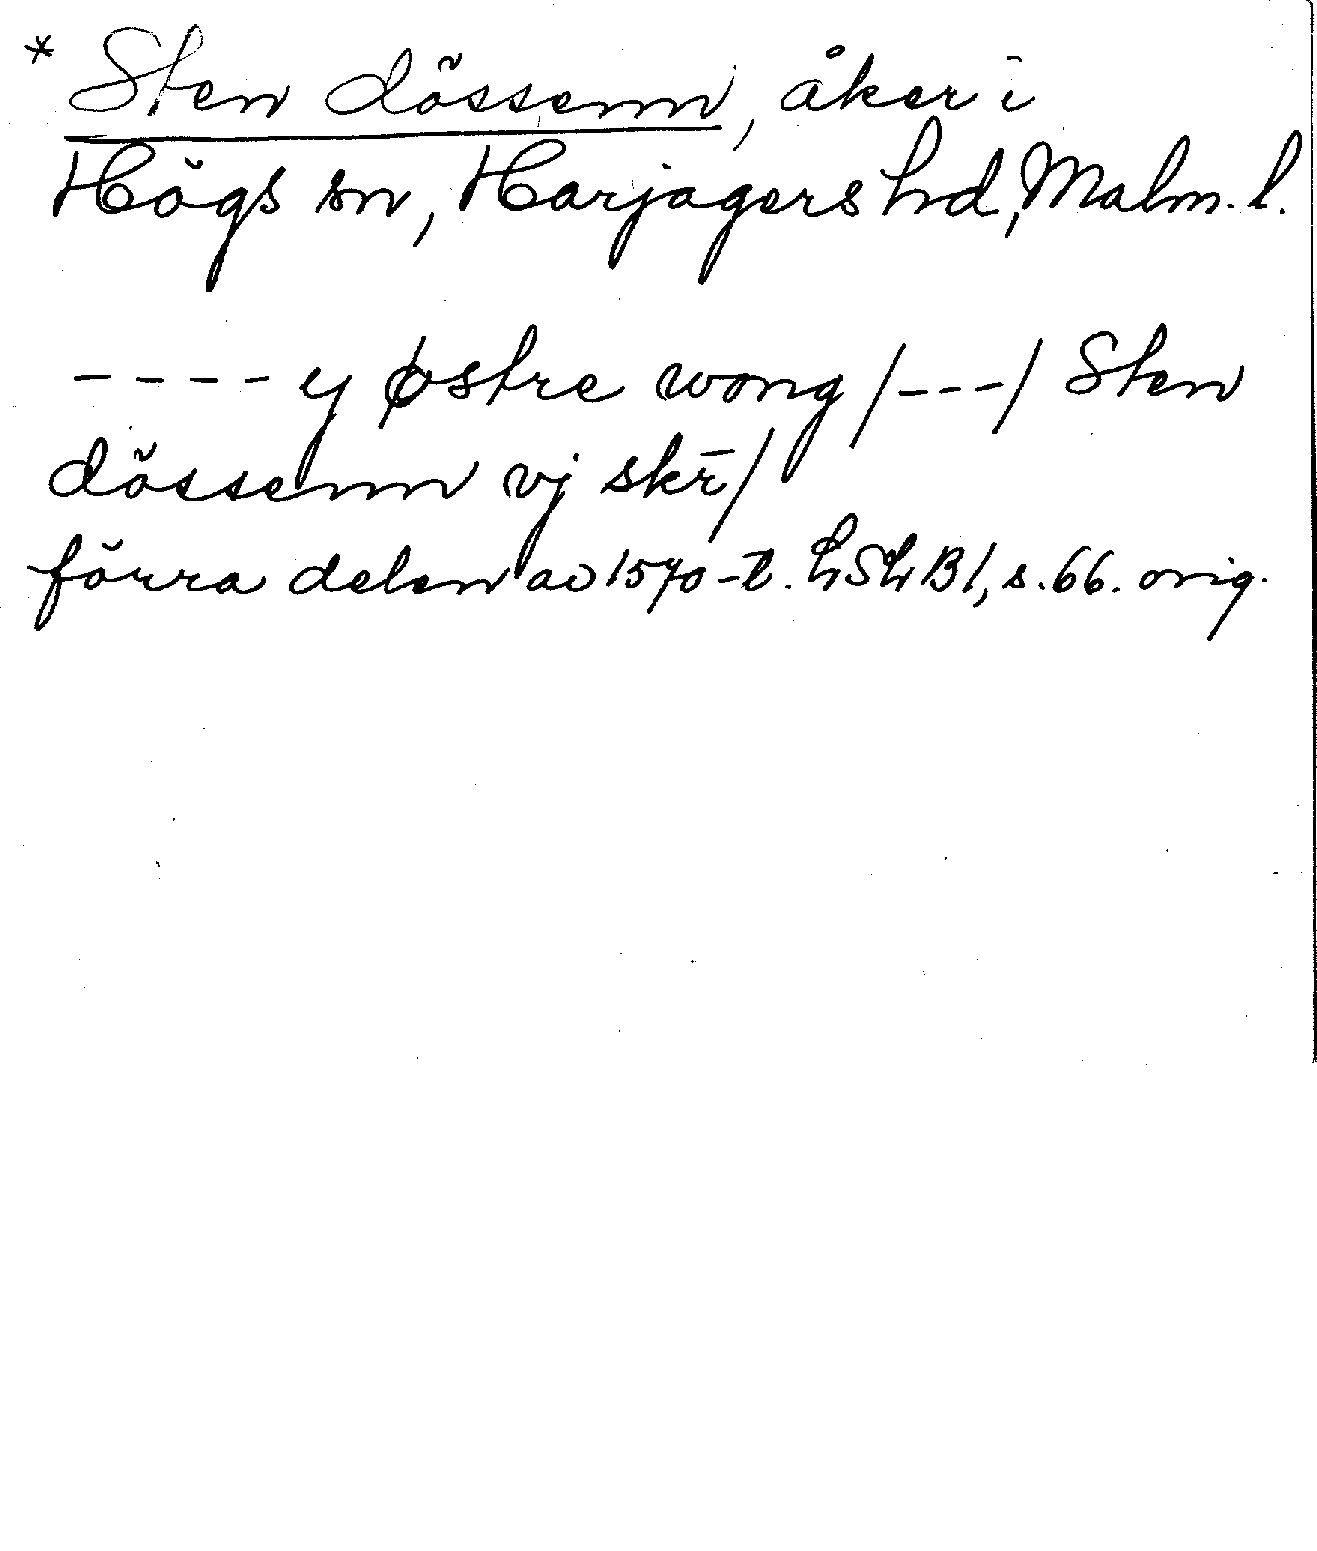 * Sten dössenn, åker i
Högs sn, Harjagers hd, Malm. l.
---- y østre wong /---/ Sten
dössenn vj skr̄/
förra delen av 1570-t. LSLB1, s. 66. orig.